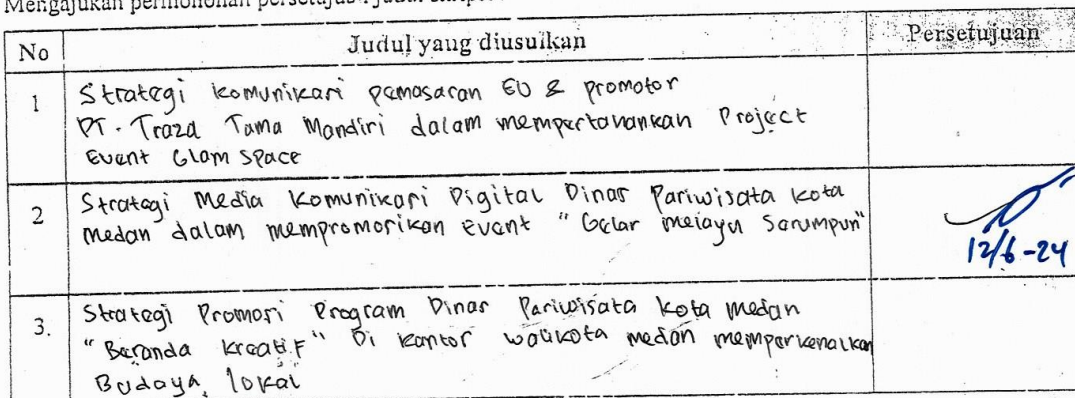 Mengajukan permohonan persetujuan judul
No Judul yang diusulkan Persetujuan
1 Strategi komunikasi pemasaran EO & promotor
PT. Traza Tama Mandiri dalam mempertahankan Project
Event Glam Space
2 Strategi Media Komunikasi Digital Dinas Pariwisata Kota
Medan dalam mempromosikan Event "Gelar Melayu Serumpun"
12/6-24
3. Strategi Promosi Program Dinas Pariwisata Kota Medan
"Beranda Kreatif" Di Kantor Walikota Medan memperkenalkan
Budaya lokal